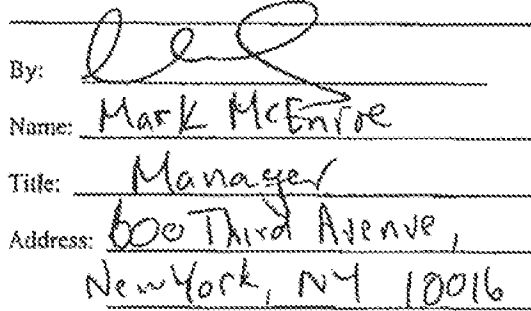 By:
Name: Mark McEnroe
Title: Manager
Address: 600 Third Avenue,
New York, NY 10016